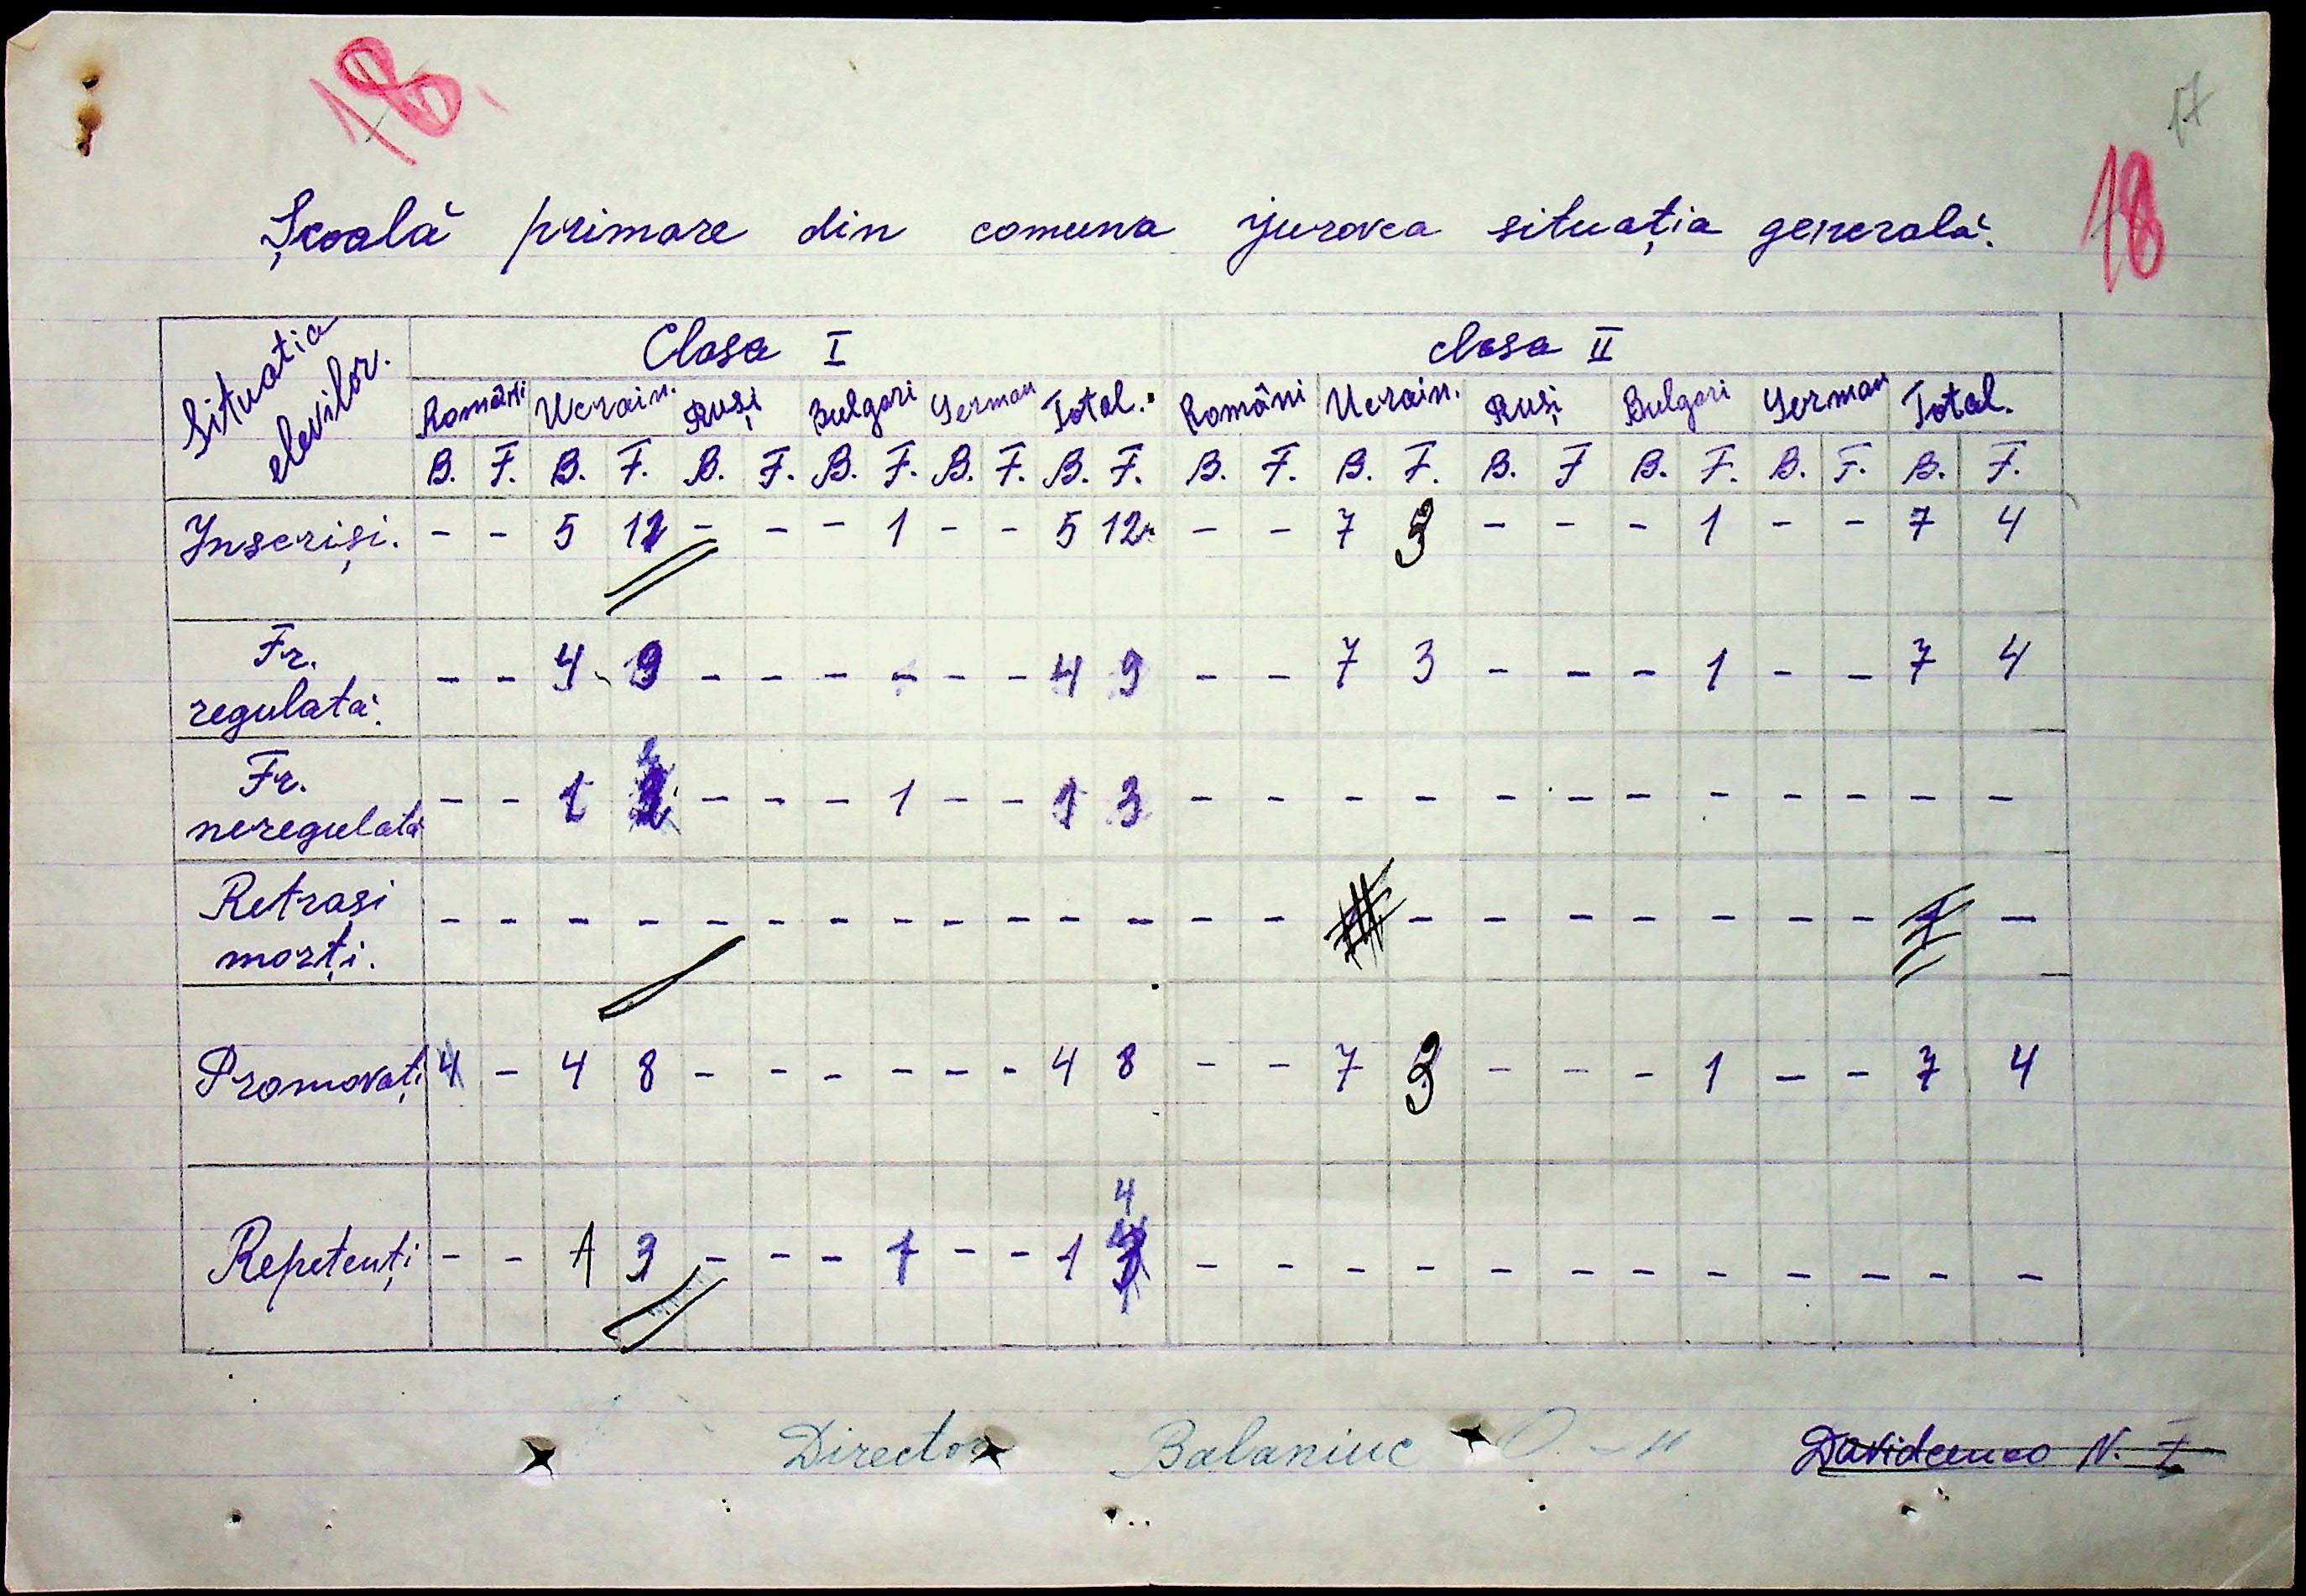 18.
17
18
Școală primare din comuna Jurovca situația generală.
Situatia elevilor. Clasa I clasa II
Români Ucrain. Ruși Bulgari German Total. Români Ucrain. Ruși Bulgari German Total.
B. F. B. F. B. F. B. F. B. F. B. F. B. F. B. F. B. F B. F. B. F. B. F.
Inseriși. - - 5 12 - - - 1 - - 5 12 - - 7 3 - - - 1 - - 7 4
Fr. regulată. - - 4 9 - - - - - - 4 9 - - 7 3 - - - 1 - - 7 4
Fr. neregulată - - 1 2 - - - 1 - - 1 3 - - - - - - - - - - - -
Retrași morți. - - - - - - - - - - - - - - - - - - - - - 1 -
Promovați 4 - 4 8 - - - - - - 4 8 - - 7 3 - - - 1 - - 7 4
Repetenți - - 1 3 - - - 1 - - 1 4 - - - - - - - - - - - -
Director Balaniuc Davidenco N. I